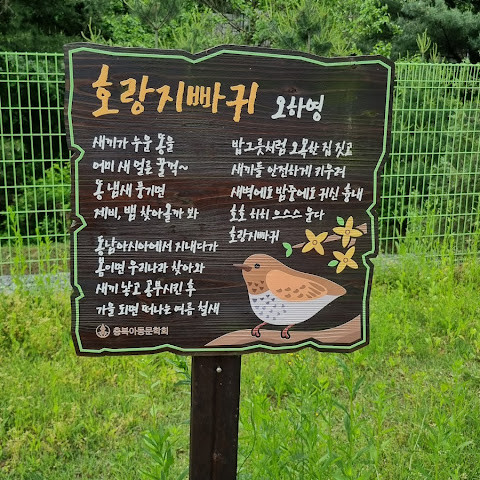 호랑지빠귀 오하영
새끼가 누운 똥을
어미 새 얼른 꿀꺽~
똥 냄새 풍기면
제비, 뱀 찾아올가 봐
동남아시아에서 지내다가
봄이면 우리나라 찾아와
새끼 낳고 공부시킨 후
가을 되면 떠나는 여름 철새
밥그릇처럼 오목한 집 짓고
새끼들 안전하게 키우려
새벽에도 밤중에도 귀신 흉내
호호 히히 으스스 운다
호랑지빠귀
충북아동문학회